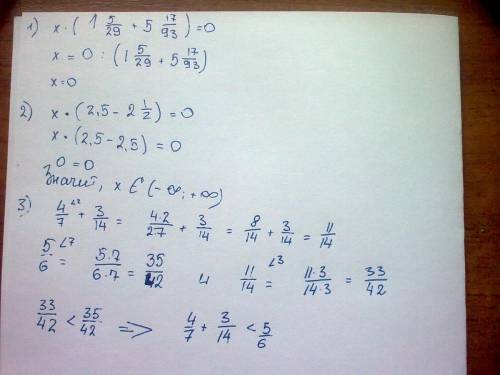 1) x·(1 5/29 + 5 17/93) = 0
x = 0 : (1 5/29 + 5 17/93)
x=0
2) x·(2,5 - 2 1/2) = 0
x·(2,5 - 2,5) = 0
0 = 0
Значит, x ∈ (-∞; +∞)
3) 4/7 ∠2 + 3/14 = 4·2/27 + 3/14 = 8/14 + 3/14 = 11/14
5/6 ∠7 = 5·7/6·7 = 35/42 и 11/14 ∠3 = 11·3/14·3 = 33/42
33/42 < 35/42 => 4/7 + 3/14 < 5/6